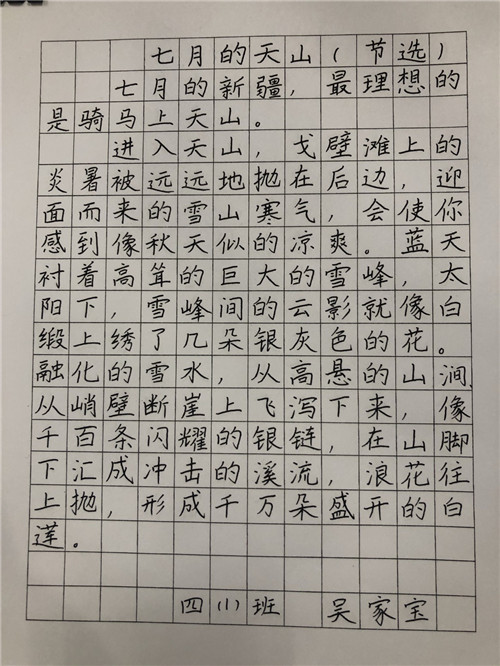 七月的天山(节选)
七月的新疆，最理想的
是骑马上天山。
进入天山，戈壁滩上的
炎暑被远远地抛在后边，迎
面而来的雪山寒气，会使你
感到像秋天似的凉爽。蓝天
衬着高耸的巨大的雪峰，太
阳下，雪峰间的云影就像白
缎上绣了几朵银灰色的花。
融化的雪水，从高悬的山涧、
从峭壁断崖上飞泻下来，像
千百条闪耀的银链，在山脚
下汇成冲击的溪流，浪花往
上抛，形成千万朵盛开的白
莲。
四(1)班 吴家宝